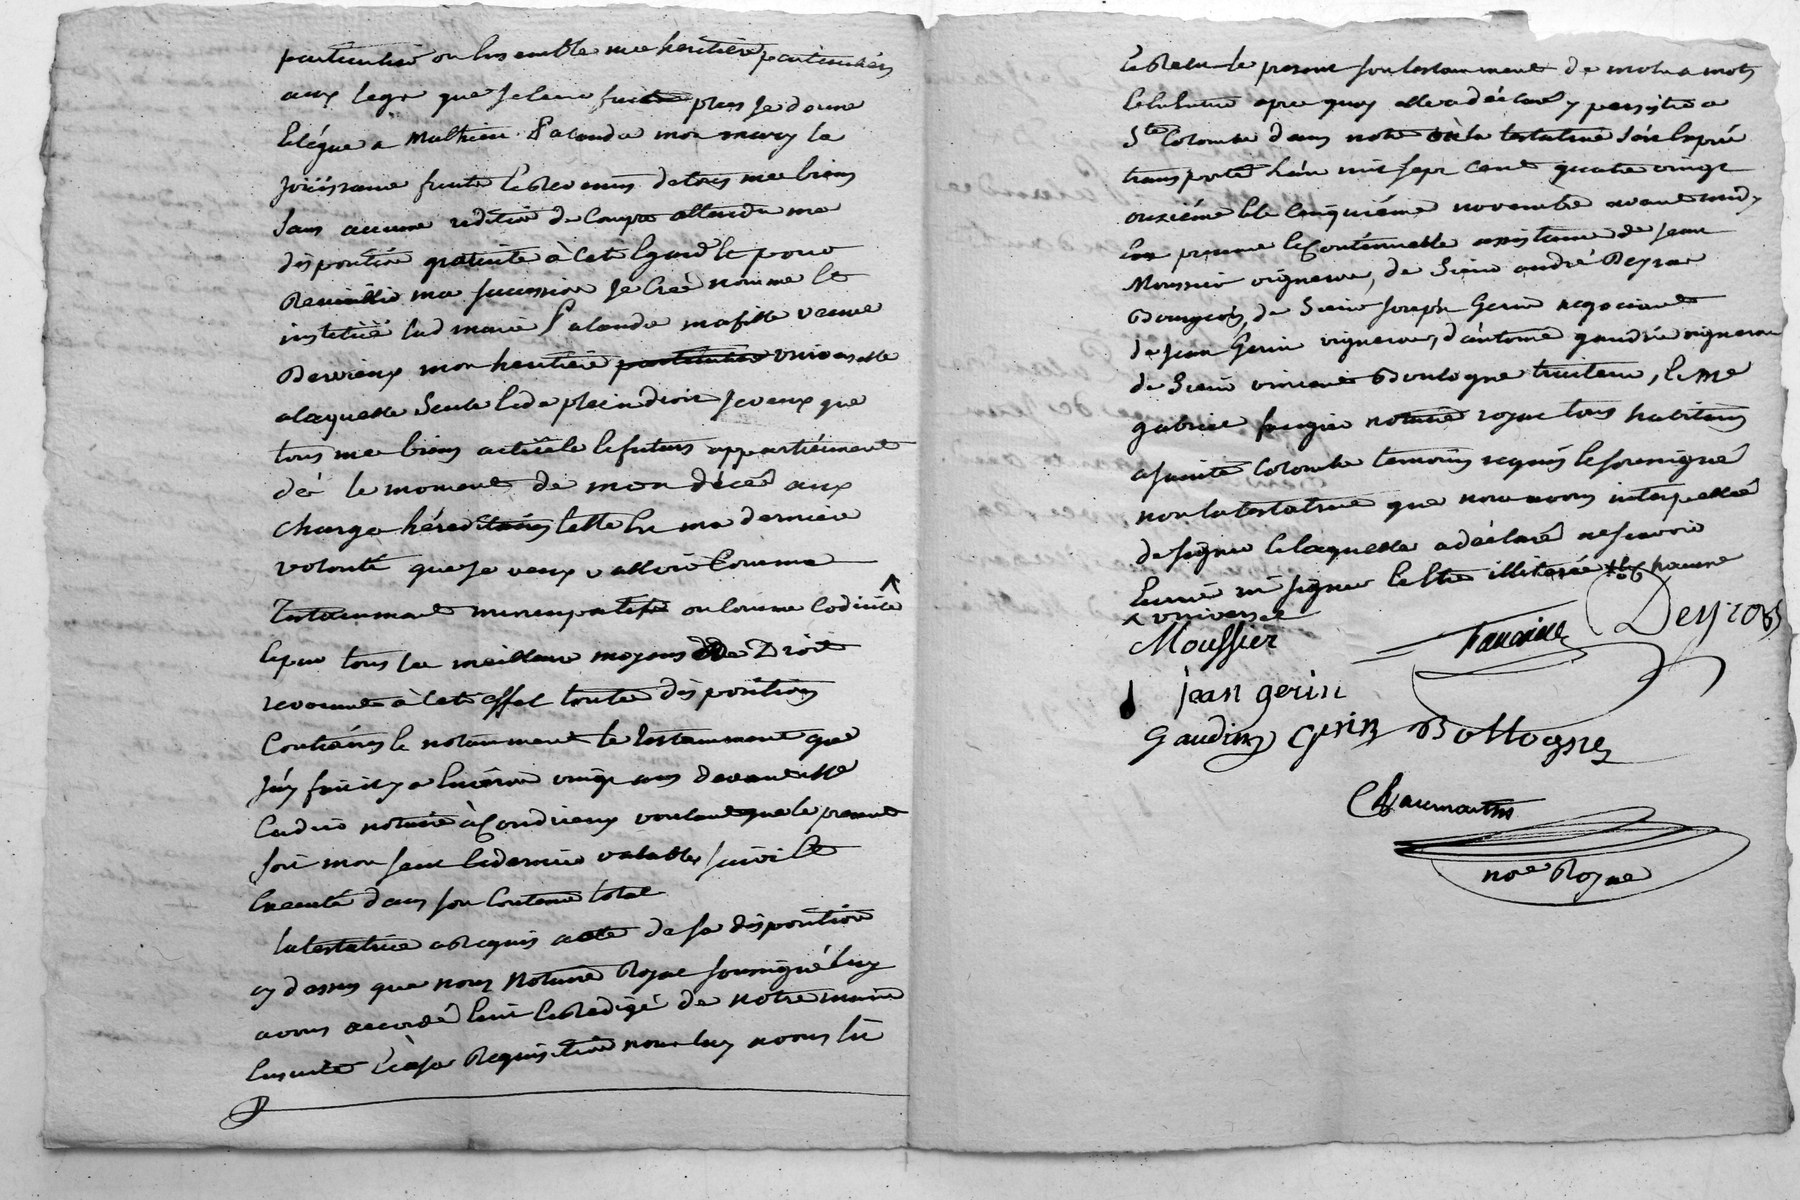 particuliere ou ensemble mes heritiers particuliers
aux legs que je leur fait plus je donne
et légue a Mathieu Palandre mon mary la
joüissance fruits et revenus de tous mes biens
sans aucune reditiõn de compte attendu ma
dispositiõn gratuite à cet egard et pour
Recueillir ma succession je creé nomme et
institüe lad marie Palandre ma fille veuve
Dervieux mon heritiere particuliere universelle
a laquelle seule et de plein droit je veux que
tous mes biens actüels et futurs appartiénnent
dés le moment de mon décés aux
charges héreditaires telle est ma derniere
volonté que je veux valloir comme
Testamment nuncupatif ou comme codicile
et par tous les meilleurs moyens de Droit
revoquant à cet effet toutes dispositions
contraires et notamment le testamment que
j'ay fait il y a environ vingt ans devant Me
Cadier notaire à Condrieux voulant que le present
soit mon seul et dernier valable suivi et
executé dans son contenu total
la testatrice a Requis acte de sa disposition
cy dessus que nous Notaire Royal soussigné luy
avons accordé ecrit et Redigé de notre main
ensuite et à sa Requisition nous luy avons lû
et Relu le present son testamment de mot a mot
et elle apres quoy elle a déclaré y persister a
Ste Colombe dans notre où la testatrice s'est exprés
transporté l'an mil sept cent quatre vingt
onziéme et le cinquiéme novembre avant midy
en presence et continuelle assistance de Jean
Moussier vigneron, de Sieur andré Deyras
Bourgeois, de Sieur Joseph Gerin negociant
de Jean Gerin vigneron, d'antoine gaudin vigneron
de Sieur vincent Boulogne traiteur, et Me
gabriel faugier notaire royal tous habitans
a sainte Colombe temoins requis et soussignés
non la testatrice que nous avons interpellée
de signer et laquelle a déclaré ne sçavoir
ecrire ni signer et être illiterée
^ universel
Moussier Faugier Deyras
jean gerin
Gaudin Gerin Bollogne
Chaumartin
nore Royal